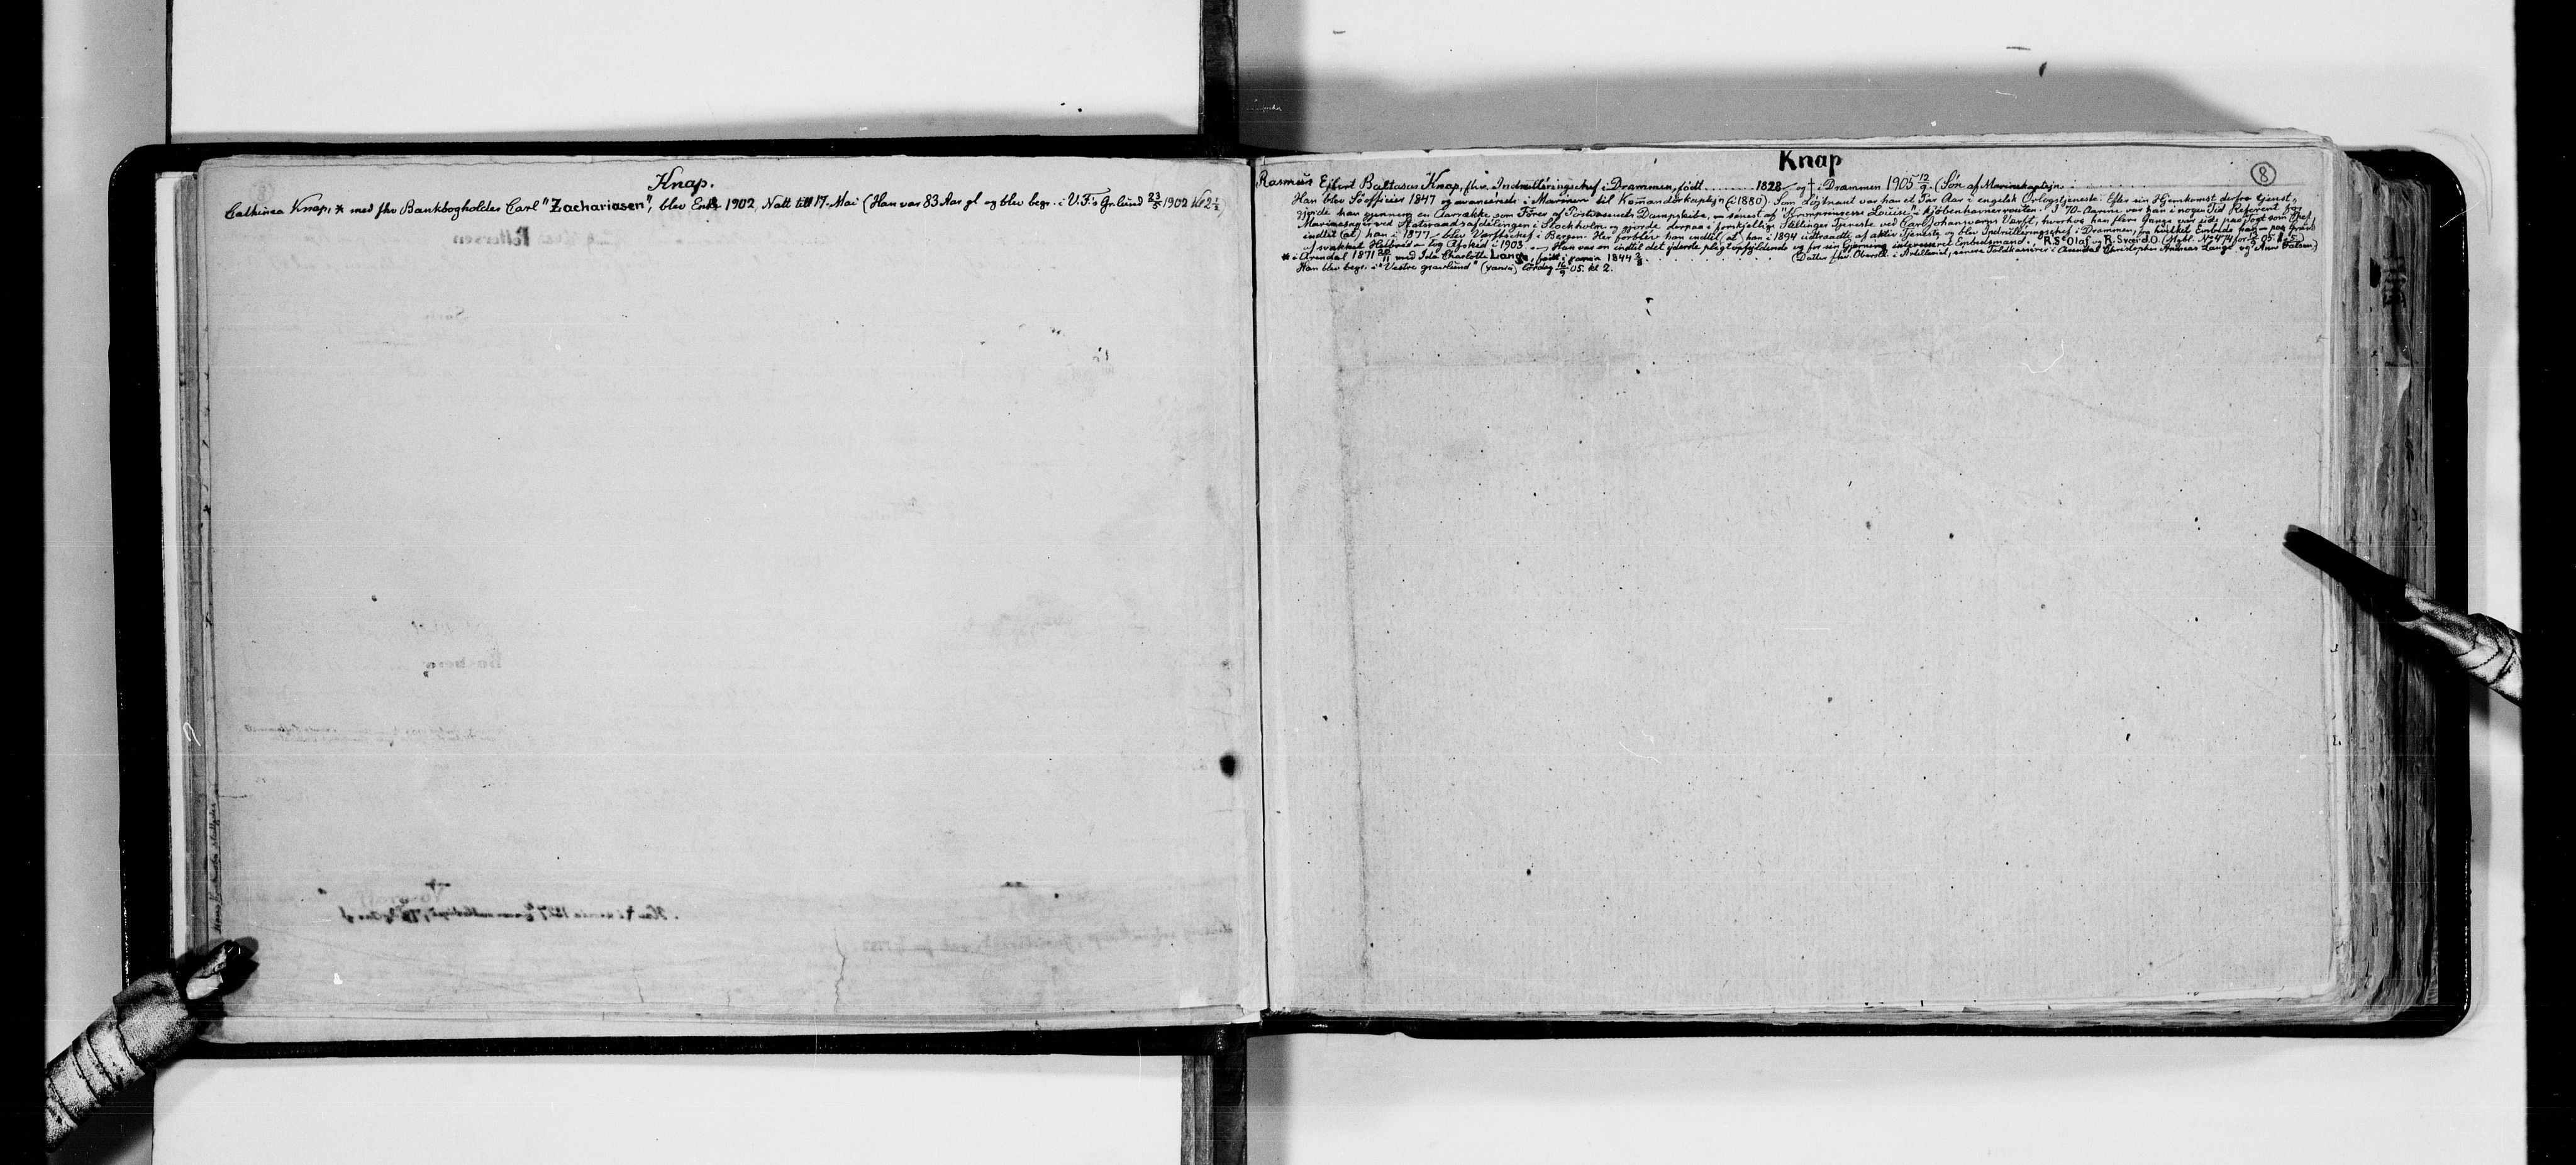 Knap.
Cathinca Knap, * med fhv Bankbogholder Carl "Zachariasen", blev Enke 1902, Natt till 17. Mai (Han var 83 Aar gl og blev begr. i V.F.s Gr.lund 23/5 1902 Kl 2½)
Knap
8
Rasmus Ejlert Baltasar Knap, fhv. Indrulleringschef i Drammen, født ........ 1828 og † i Drammen 1905 12/9. (Søn af Marinekaptejn
Han blev Søofficier 1847 og avancerede i Marinen til Komandørkaptejn (i 1880). Som Løjtnant var han et Par Aar i engelsk Orlogstjeneste. Efter sin Hjemkomst derfra tjenst-
gjorde han gjennem en Aarrække som Fører af Postvæsenets Dampskibe, senest af "Kronprinsesse Louise" i Kjøbenhavnerrouten. I 70-Aarene var han i nogen Tid Referent for
Marinesager ved Statsraadsafdelingen i Stockholm og gjorde derpaa i forskjellige Stillinger Tjeneste ved Carl Johansværns Værft, hvorhos han flere Gange var ude paa Togt som Chef,
indtil (at) han i 1877 blev Værftschef i Bergen. Her forblev han indtil at han i 1894 udtraadte af aktiv Tjeneste og blev Indrulleringschef i Drammen, fra hvilket Embede han paa Grund
af svækket Helbred tog Afsked i 1903. Han var en indtil det yderste pligtopfyldende og for sin Gjerning interesseret Embedsmand. R. St Olaf og R. Sværd.O. (Mgbl. No 474 for 13/9 05
* i Arendal 1871 med Ida Charlotte Lange, født i 1844 (Datter fhv. Oberstl. i Artilleriet, senere Toldkasserer i Arendal Christopher Andreas Lange og Anne Falsen.)
Han blev begr. i "Vestre gravlund" Lørdag 16/9 05. kl 2.